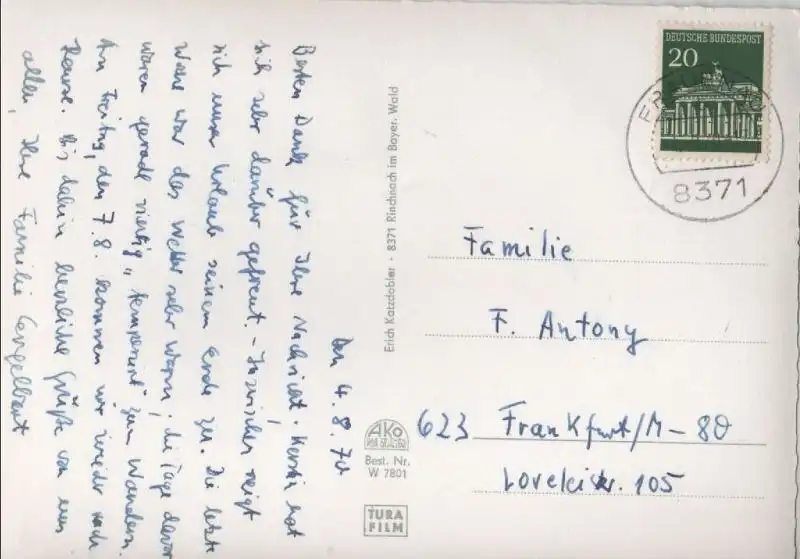 Den 4.8.70
Besten Dank für Ihre Nachricht. Kerstin hat
sich sehr darüber gefreut. - Inzwischen neigt
sich unser Urlaub seinem Ende zu. Die letzte
Woche war das Wetter sehr warm; die Tage davor
waren gerade richtig „temperiert“ zum Wandern.
Am Freitag, den 7.8. kommen wir wieder nach
Hause. Bis dahin herzliche Grüße von uns
allen, Ihre Familie
Erich Katzdobler · 8371 Rinchnach im Bayer. Wald
AKO
Best. Nr.
W 7801
TURA
FILM
DEUTSCHE BUNDESPOST
20
8371
Familie
F. Antony
623 Frankfurt/M-80
Loreleistr. 105